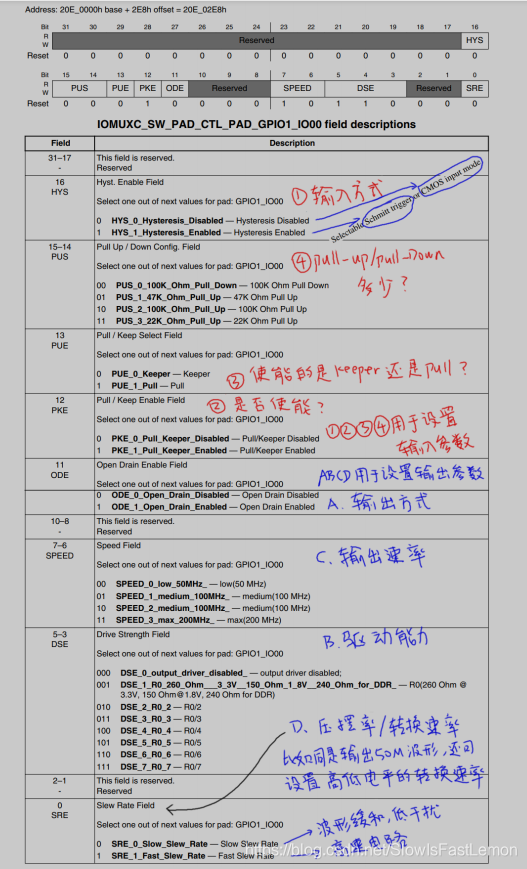 Address: 20E_0000h base + 2E8h offset = 20E_02E8h
Bit 31 30 29 28 27 26 25 24 23 22 21 20 19 18 17 16
R
W
Reserved HYS
Reset 0 0 0 0 0 0 0 0 0 0 0 0 0 0 0 0
Bit 15 14 13 12 11 10 9 8 7 6 5 4 3 2 1 0
R
W
PUS PUE PKE ODE Reserved SPEED DSE Reserved SRE
Reset 0 0 0 1 0 0 0 0 1 0 1 1 0 0 0 0
IOMUXC_SW_PAD_CTL_PAD_GPIO1_IO00 field descriptions
Field Description
31–17
-
This field is reserved.
Reserved
16
HYS
Hyst. Enable Field
①输入方式
Select one out of next values for pad: GPIO1_IO00
0 HYS_0_Hysteresis_Disabled — Hysteresis Disabled
1 HYS_1_Hysteresis_Enabled — Hysteresis Enabled
Selectable Schmitt trigger or CMOS input mode
15–14
PUS
Pull Up / Down Config. Field
④pull-up/pull-Down
多少?
Select one out of next values for pad: GPIO1_IO00
00 PUS_0_100K_Ohm_Pull_Down — 100K Ohm Pull Down
01 PUS_1_47K_Ohm_Pull_Up — 47K Ohm Pull Up
10 PUS_2_100K_Ohm_Pull_Up — 100K Ohm Pull Up
11 PUS_3_22K_Ohm_Pull_Up — 22K Ohm Pull Up
13
PUE
Pull / Keep Select Field
Select one out of next values for pad: GPIO1_IO00
0 PUE_0_Keeper — Keeper
1 PUE_1_Pull — Pull
③使能的是keeper还是pull?
12
PKE
Pull / Keep Enable Field
②是否使能?
Select one out of next values for pad: GPIO1_IO00
0 PKE_0_Pull_Keeper_Disabled — Pull/Keeper Disabled
1 PKE_1_Pull_Keeper_Enabled — Pull/Keeper Enabled
①②③④用于设置
输入参数
11
ODE
Open Drain Enable Field
ABCD用于设置输出参数
Select one out of next values for pad: GPIO1_IO00
0 ODE_0_Open_Drain_Disabled — Open Drain Disabled
1 ODE_1_Open_Drain_Enabled — Open Drain Enabled
A. 输出方式
10–8
-
This field is reserved.
Reserved
7–6
SPEED
Speed Field
C. 输出速率
Select one out of next values for pad: GPIO1_IO00
00 SPEED_0_low_50MHz_ — low(50 MHz)
01 SPEED_1_medium_100MHz_ — medium(100 MHz)
10 SPEED_2_medium_100MHz_ — medium(100 MHz)
11 SPEED_3_max_200MHz_ — max(200 MHz)
5–3
DSE
Drive Strength Field
B. 驱动能力
Select one out of next values for pad: GPIO1_IO00
000 DSE_0_output_driver_disabled_ — output driver disabled;
001 DSE_1_R0_260_Ohm___3_3V__150_Ohm_1_8V__240_Ohm_for_DDR_ — R0(260 Ohm @
3.3V, 150 Ohm@1.8V, 240 Ohm for DDR)
010 DSE_2_R0_2 — R0/2
011 DSE_3_R0_3 — R0/3
100 DSE_4_R0_4 — R0/4
101 DSE_5_R0_5 — R0/5
110 DSE_6_R0_6 — R0/6
111 DSE_7_R0_7 — R0/7
D. 压摆率/转换速率
比如同是输出50M波形,还可
设置高低电平的转换速率
2–1
-
This field is reserved.
Reserved
0
SRE
Slew Rate Field
Select one out of next values for pad: GPIO1_IO00
0 SRE_0_Slow_Slew_Rate — Slow Slew Rate
1 SRE_1_Fast_Slew_Rate — Fast Slew Rate
波形缓和,低干扰
高速电路
https://blog.csdn.net/SlowIsFastLemon